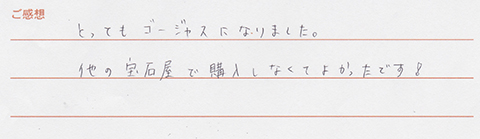 ご感想
とってもゴージャスになりました。
他の宝石屋で購入しなくてよかったです!